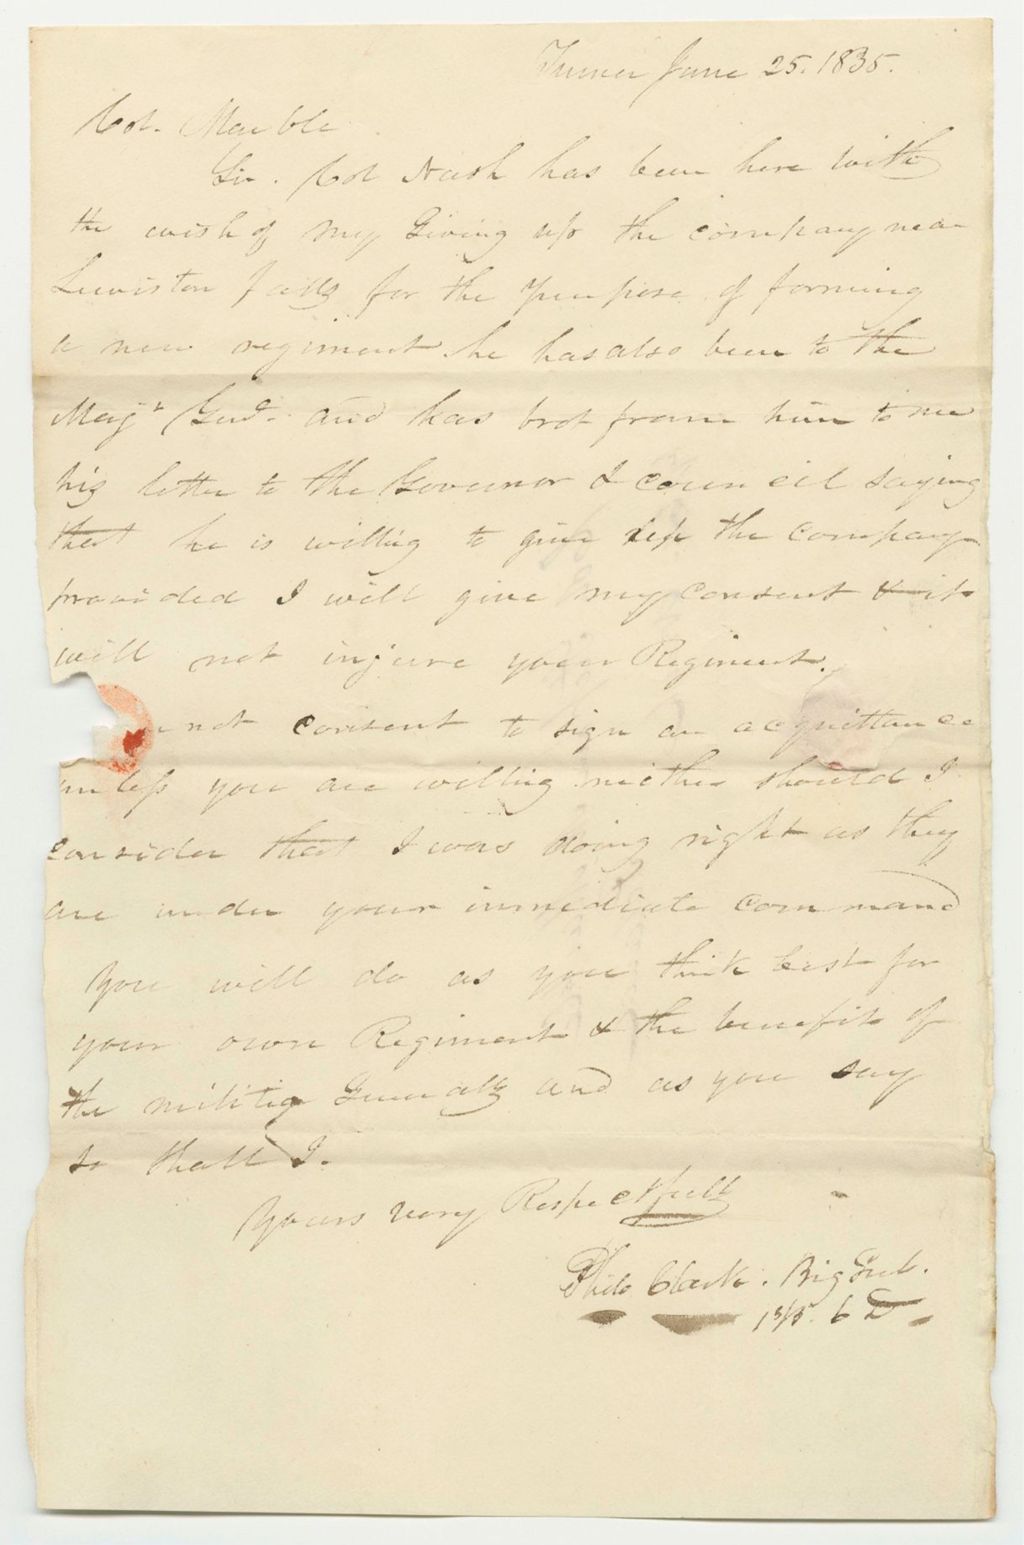 Turner June 25. 1835.
Col. Marble
Sir. Col Nash has been here with
the wish of my Giving up the company near
Lewiston falls for the purpose of forming
a new regiment he has also been to the
Majr Genl. and has brot from him to me
his letter to the Governor & council saying
that he is willing to give up the company
provided I will give my consent & it
will not injure your Regiment.
not consent to sign an acquittance
unless you are willing neither should I
consider that I was doing right as they
are under your immediate command
You will do as you think best for
your own Regiment & the benefit of
the militia Generally and as you say
so shall I.
Yours very Respectfully
Philo Clark. Brig Genl.
1st B. 6 D